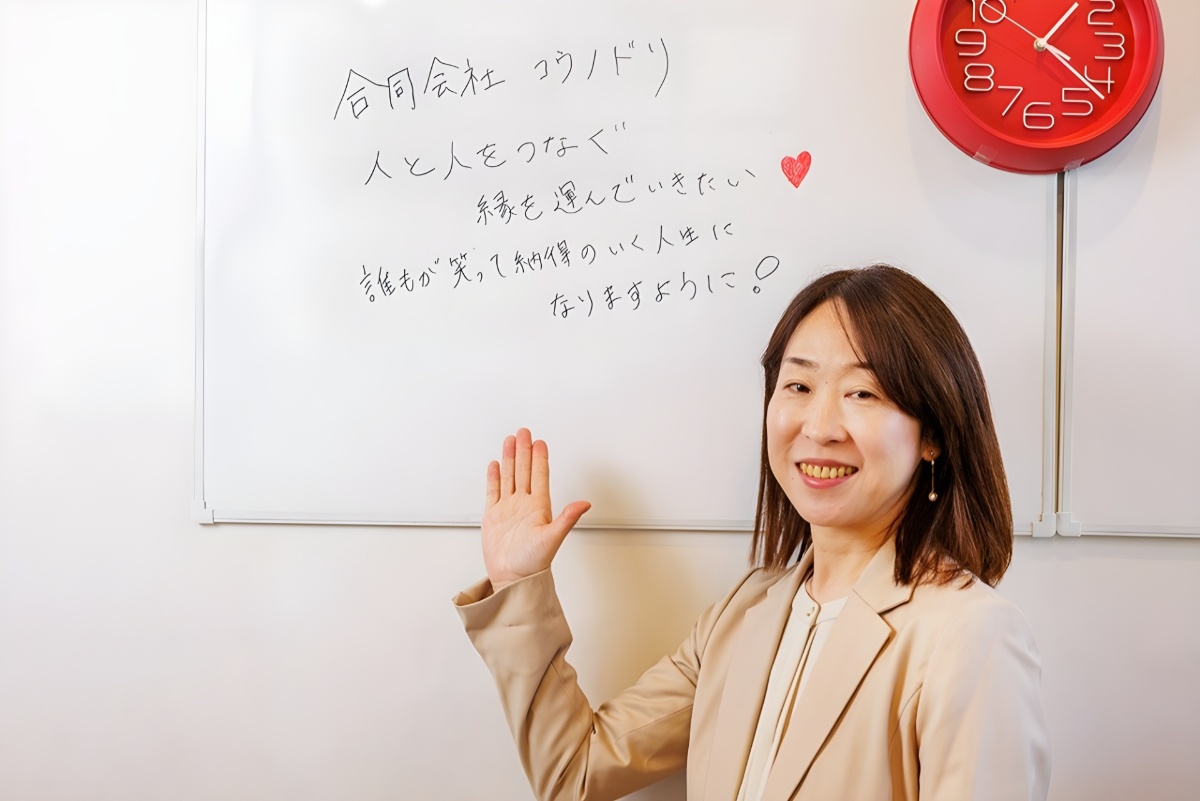 合同会社 コウノドリ
人と人をつなぐ
縁を運んでいきたい
誰もが笑って納得のいく人生に
なりますように!
10 2
9 3
8 4
7 6 5